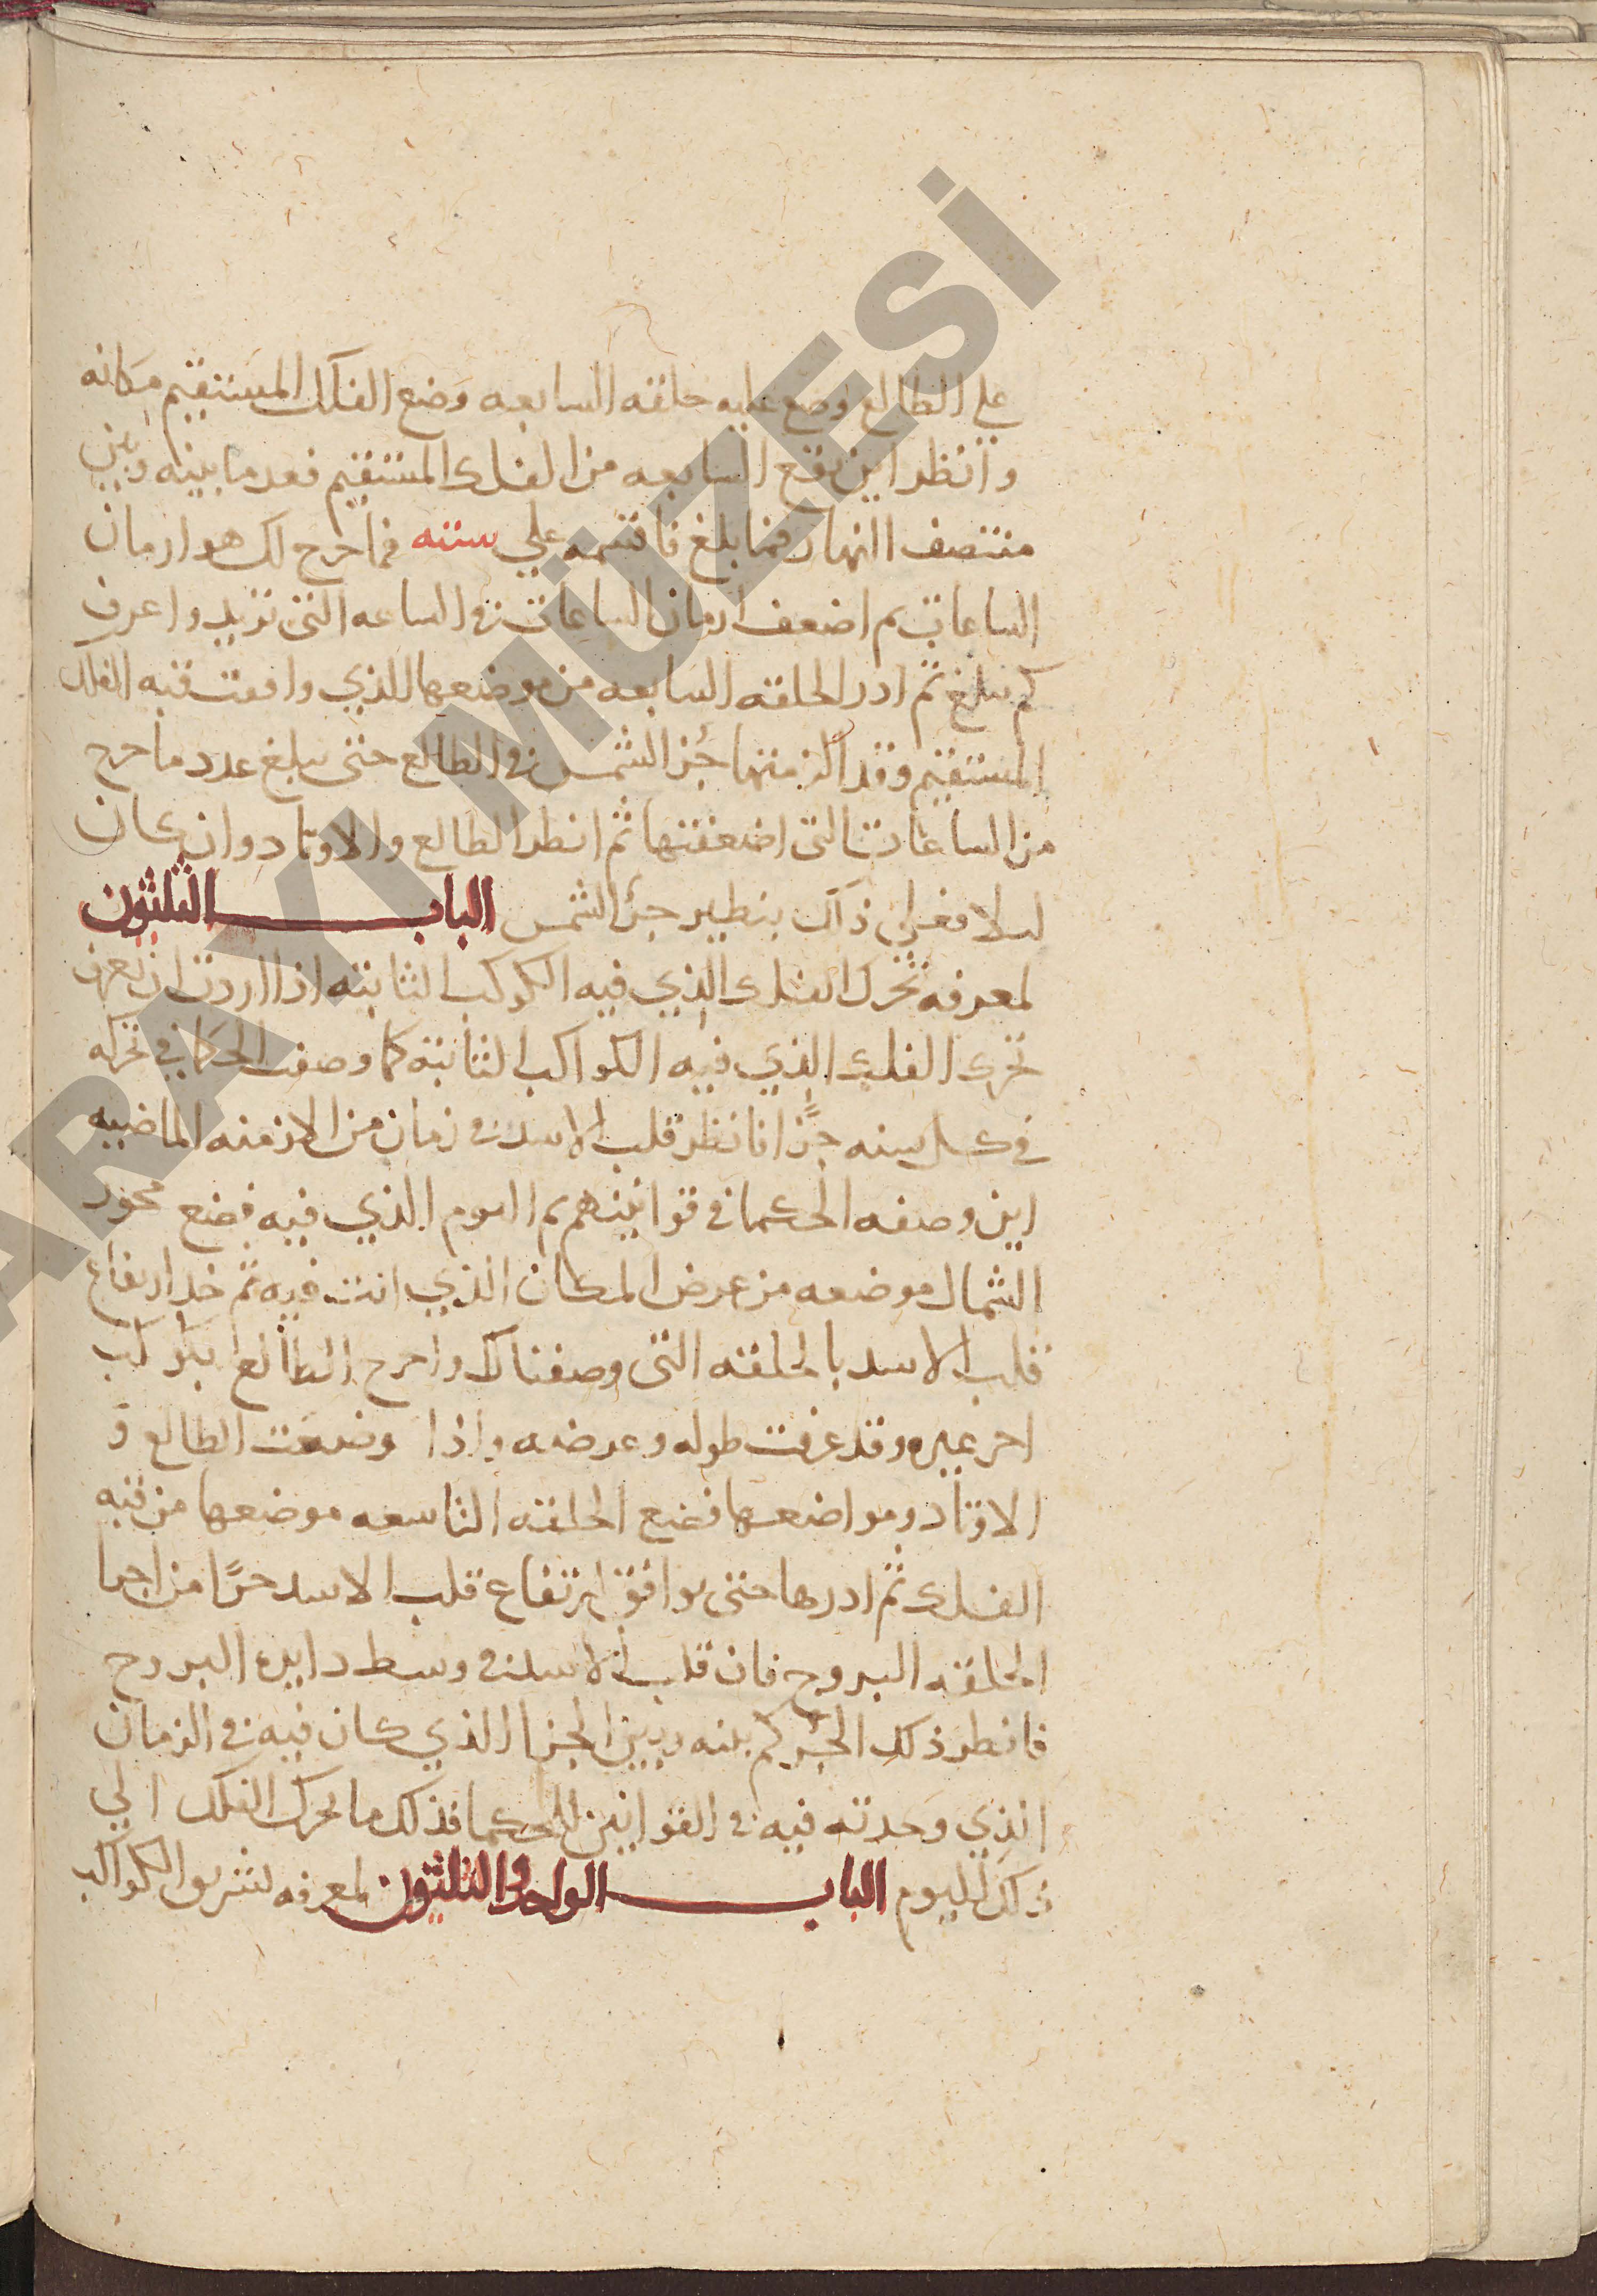 على الطالع وضع عليه حلقه السابعه وضع الفلك المستقيم مكانه
وانظر اين يقع السابعه من الفلك المستقيم فعد ما بينه وبين
منتصف النهار فما بلغ فاقسمه على سته فما خرج لك هو ازمان
الساعات ثم اضعف ازمان الساعات في الساعه التى تريد واعرف
كم يبلغ ثم ادر الحلقه السابعه من موضعها اللذي وافقت فيه الفلك
المستقيم وقد الزمتها جُز الشمس في الطالع حتى يبلغ عدد ما خرج
من الساعات التى اضعفتها ثم انظر الطالع والاوتاد وان كان
ليلا فعلى ذلك بنظير جزء الشمس الباب الثلثون
لمعرفه تحرك الفلك الذي فيه الكوكب الثابته اذا اردت ان تعرف
تحرك الفلك الذي فيه الكواكب الثابته كما وصفت الحكما في تحركه
في كل سنه جزًا فانظر قلب الاسد في زمان من الازمنه الماضيه
اين وصفه الحكما في قوانينهم ثم اليوم الذي فيه فضع محور
الشمال موضعه من عرض المكان الذي انت فيه ثم خذ ارتفاع
قلب الاسد بالحلقه التى وصفنا لك واخرج الطالع بكوكب
اخر غيره وقد عرفت طوله وعرضه واذا وضعت الطالع و
الاوتاد ومواضعها فضع الحلقه التاسعه موضعها من قبه
الفلك ثم ادرها حتى يوافق ارتفاع قلب الاسد جزًا من اجزا
الحلقه البروج فان قلب الاسد في وسط دايره البروج
فانظر ذلك الجز كم بينه وبين الجزا الذي كان فيه في الزمان
الذي وجدته فيه في القوانين للحكما فذلك ما تحرك الفلك الي
ذلك اليوم الباب الواحد والثلثون لمعرفه تشريق الكواكب
ARAYI MÜZESİ